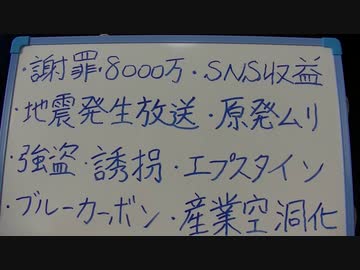 ・謝罪・8000万・SNS収益
・地震発生放送・原発ムリ
・強盗・誘拐・エプスタイン
・ブルーカーボン・産業空洞化